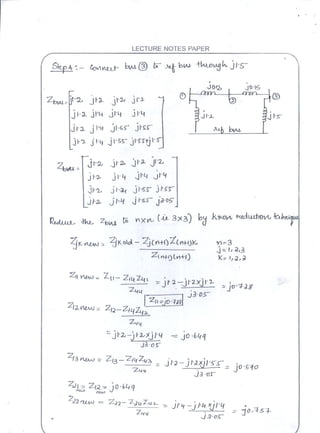 LECTURE NOTES PAPER
Step 4 :- Connect bus ③ to ref bus through j1.5
Zbus = j1.2 j1.2 j1.2 j1.2
j1.2 j1.4 j1.4 j1.4
j1.2 j1.4 j1.55 j1.55
j1.2 j1.4 j1.55 j1.55+j1.5
① j0.2 ② j0.15 ③
j1.2 j1.5
Ref bus
Zbus = j1.2 j1.2 j1.2 j1.2
j1.2 j1.4 j1.4 j1.4
j1.2 j1.4 j1.55 j1.55
j1.2 j1.4 j1.55 j3.05
Reduce the Zbus to nxn (ie 3x3) by kron reduction technique
Zjk new = Zjk old - Zj(n+1) Z(n+1)k
Z(n+1)(n+1)
n=3
j=1,2,3
k=1,2,3
Z11 new = Z11 - Z14 Z41 = j1.2 - j1.2 x j1.2 = j0.728
Z44 j3.05
Z11 = j0.728
Z12 new = Z12 - Z14 Z42
Z44
= j1.2 - j1.2 x j1.4 = j0.649
j3.05
Z13 new = Z13 - Z14 Z43 = j1.2 - j1.2 x j1.55 = j0.590
Z44 j3.05
Z21 new = Z12 new = j0.649
Z22 new = Z22 - Z24 Z42 = j1.4 - j1.4 x j1.4 = j0.757
Z44 j3.05